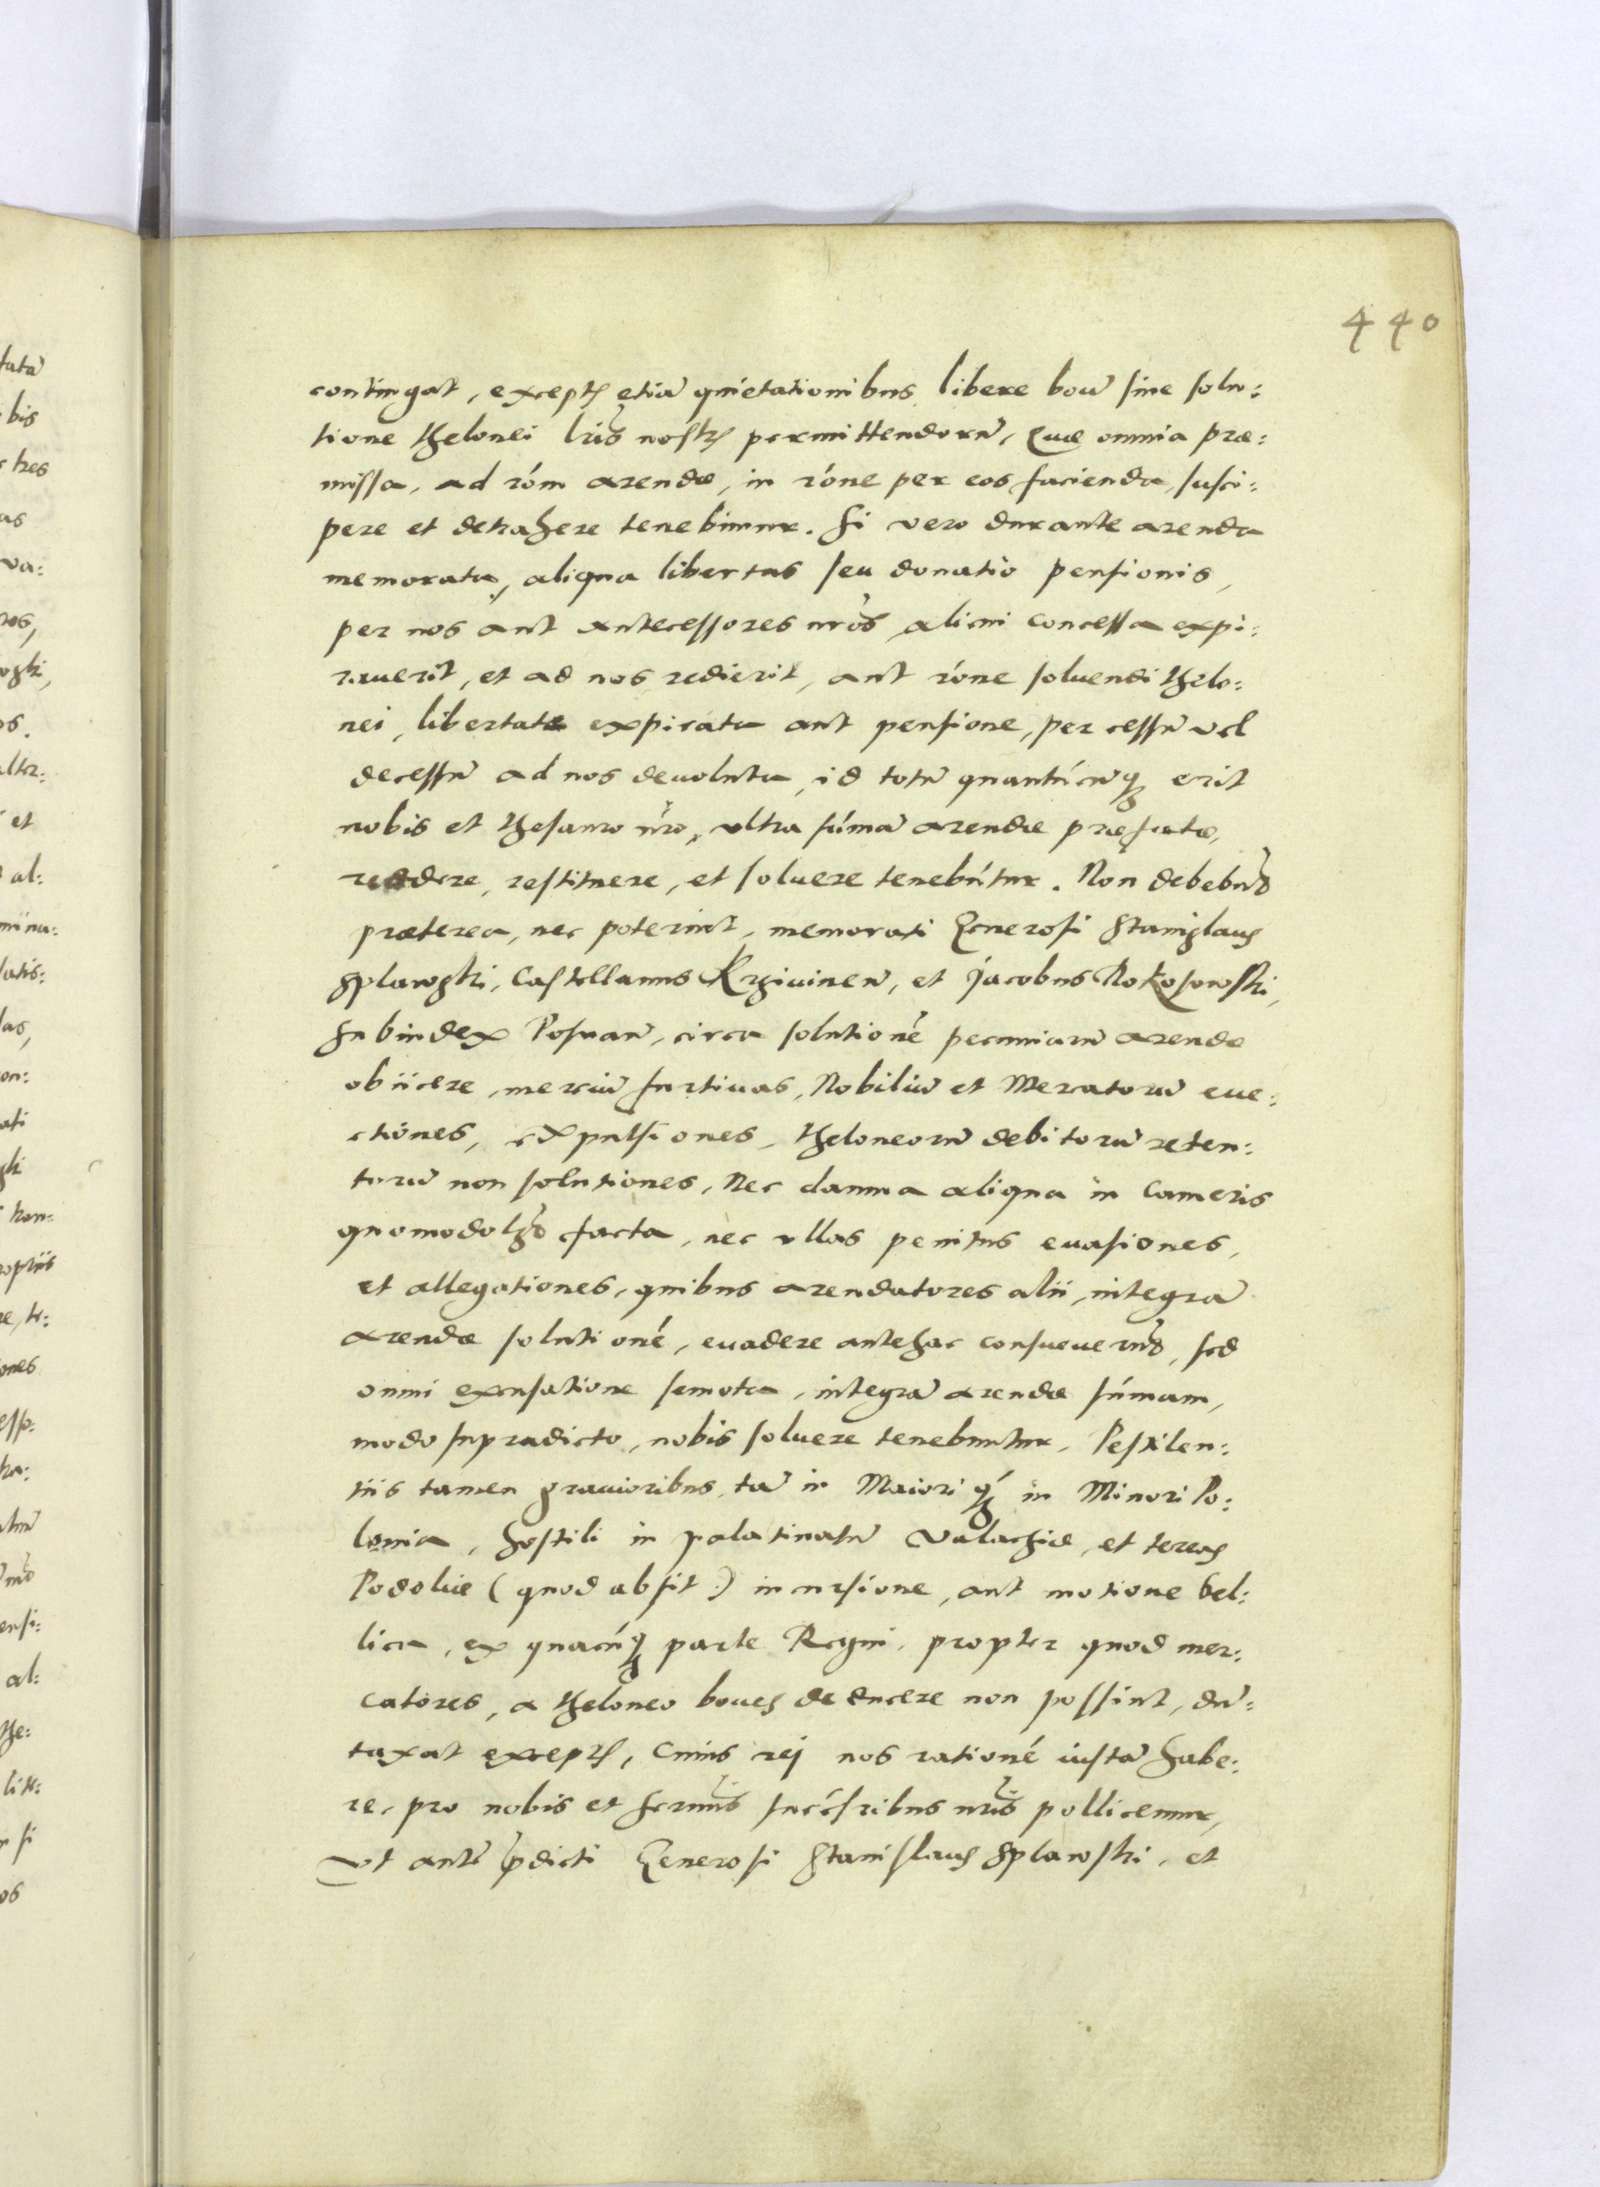 440
contingat, except[is] etiā quietationibus libere boū sine solu:
tione thelonei lrīs nostr[is] permittendorū, Quæ omnia præ:
missa, ad rōm arendæ, in rōne per eos facienda, susci:
pere et detrahere tenebimur. Si vero durante arenda
memorata, aliqua libertas seu donatio pensionis,
per nos aut antecessores nr̄os alicui concessa expi:
rauerit, et ad nos redierit, aut rōne soluendi thelo:
nei, libertate expirata aut pensione, per cessū vel
decessū ad nos deuoluta, id totū quantūcūq erit
nobis et thesauro nr̄o, vltra sūmā arendæ præfatæ,
reddere, restituere, et soluere tenebūtur. Non debebūt
præterea, nec poterint, memorati Generosi Stanislaus
Splawski, Castellanus Krzivinen, et Jacobus Rokosowski,
Subiudex Posnan, circa solutionē pecuniarū arendæ
obiicere, merciū furtiuas, Nobiliū et Mercatorū eue:
ctiones, expulsiones, theloneorū debitorū reten:
torū non solutiones, Nec damna aliqua in Cameris
quomodolꝫt facta, nec vllas penitus euasiones,
et allegationes, quibus arendatores alii, integrā
arendæ solutionē, euadere antehac consueuerūt, sed
omni excusatione semota, integrā arendæ sūmam,
modo supradicto, nobis soluere tenebuntur, Pestilen:
tiis tamen grauioribus, tā in Maiori q̄ in Minori Po:
lonia, hostili in palatinatū Valachiæ, et terras
Podoliæ (quod absit:) incursione, aut motione bel:
lica, ex quacūq parte Regni, propter quod mer:
catores, a theloneo boues deducere non possint, dū:
taxat except[is], Cuius rej nos rationē iustā habe:
re, pro nobis et Sermis succēsribus nr̄is pollicemur,
Vt autē p̄dicti Generosi Stanislaus Splawski, et